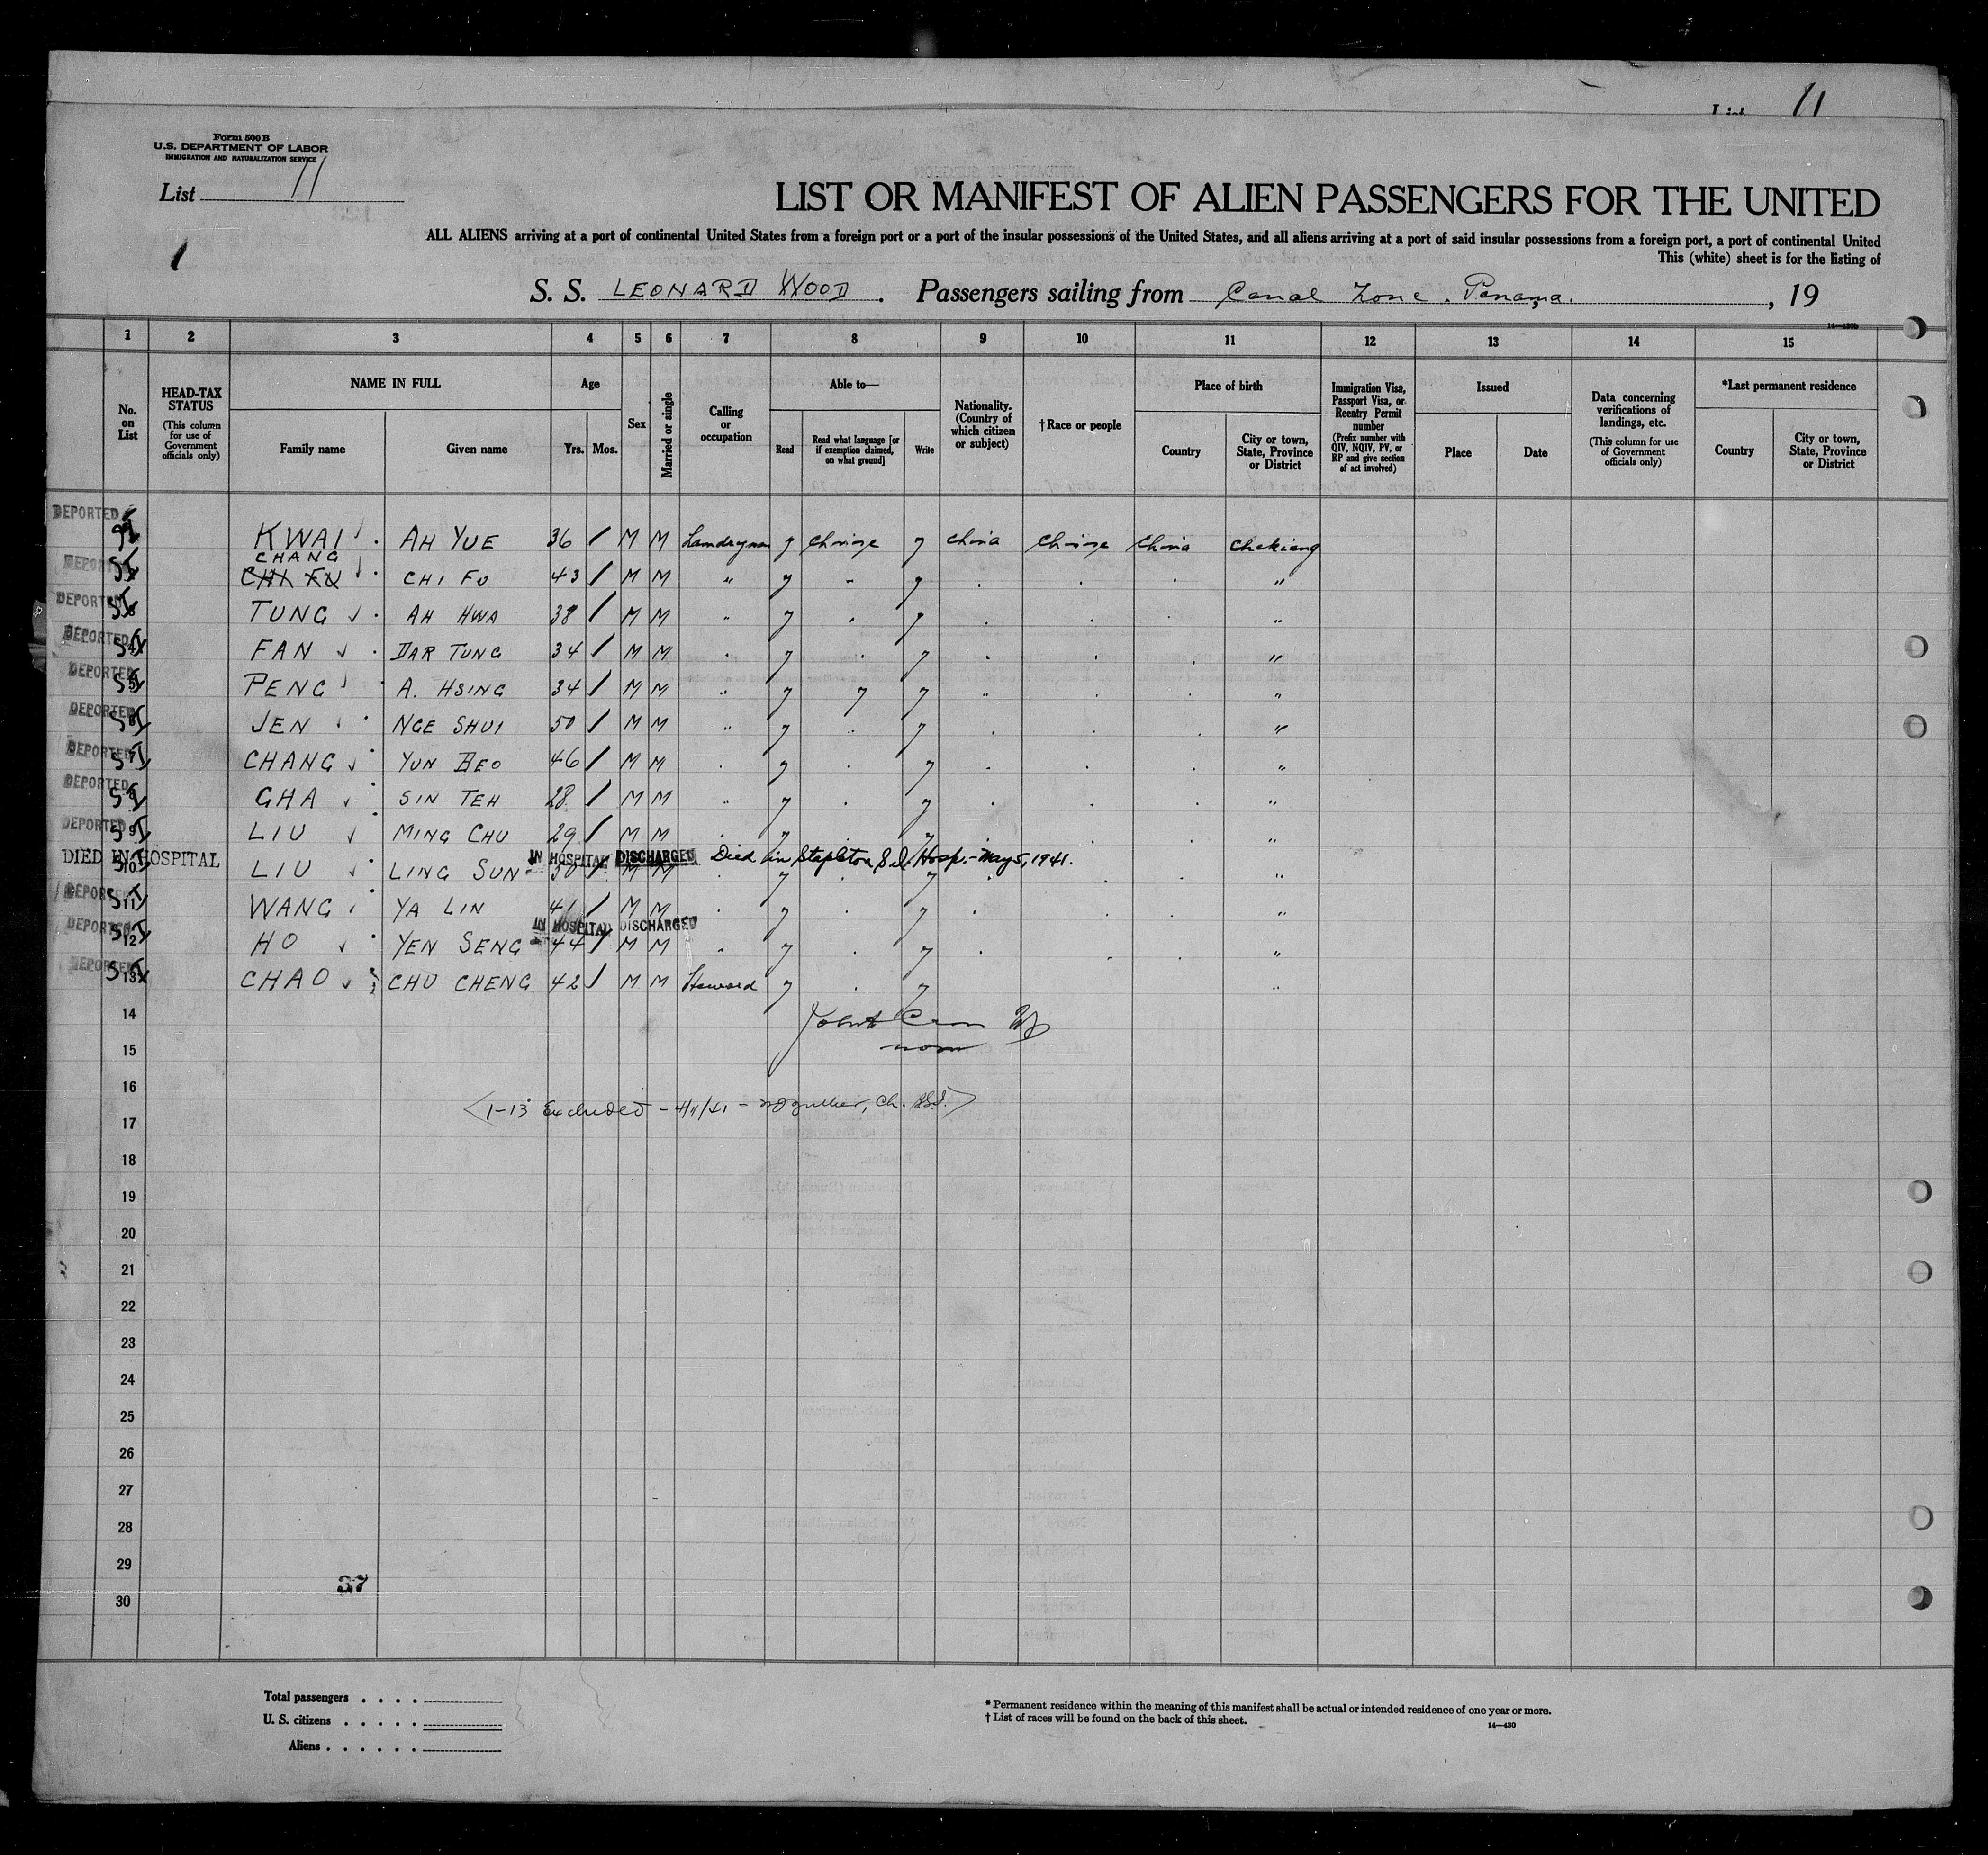 List 11
Form 500 B
U.S. DEPARTMENT OF LABOR
IMMIGRATION AND NATURALIZATION SERVICE
List 11
LIST OR MANIFEST OF ALIEN PASSENGERS FOR THE UNITED
ALL ALIENS arriving at a port of continental United States from a foreign port or a port of the insular possessions of the United States, and all aliens arriving at a port of said insular possessions from a foreign port, a port of continental United
This (white) sheet is for the listing of
1
S. S. LEONARD WOOD . Passengers sailing from Canal Zone. Panama. , 19
14—430b
1 2 3 4 5 6 7 8 9 10 11 12 13 14 15
No. on List
HEAD-TAX STATUS (This column for use of Government officials only)
NAME IN FULL Family name Given name
Age Yrs. Mos.
Sex
Married or single
Calling or occupation
Able to— Read Read what language [or if exemption claimed, on what ground] Write
Nationality. (Country of which citizen or subject)
†Race or people
Place of birth Country City or town, State, Province or District
Immigration Visa, Passport Visa, or Reentry Permit number (Prefix number with QIV, NQIV, PV, or RP and give section of act involved)
Issued Place Date
Data concerning verifications of landings, etc. (This column for use of Government officials only)
*Last permanent residence Country City or town, State, Province or District
DEPORTED KWAI AH YUE 36 M M Laundryman y Chinese y China Chinese China Chekiang
CHANG
DEPORTED CHI FU CHI FU 43 M M " y " y "
DEPORTED 3 TUNG AH HWA 38 M M " y y "
DEPORTED 4 FAN DAR TUNG 34 M M y y "
DEPORTED 5 PENG A. HSING 34 M M " y y y "
DEPORTED 6 JEN NGE SHUI 50 M M " y " y "
DEPORTED 7 CHANG YUN 46 M M y y "
DEPORTED 8 GHA SIN TEH 28 M M " y y "
DEPORTED 9 LIU MING CHU 29 M M y y "
DIED IN HOSPITAL IN HOSPITAL DISCHARGED Died in Stapleton, S.I. Hosp. - May 5, 1941.
10 LIU LING SUN 30 M M y y "
DEPORTED 11 WANG YA LIN 41 M M y y "
IN HOSPITAL DISCHARGED
DEPORTED 12 HO YEN SENG 44 M M " y y "
DEPORTED 13 CHAO CHU CHENG 42 M M Steward y y "
14
15
16
1-13 Excluded - 4/11/41 - Ch.
17
18
19
20
21
22
23
24
25
26
27
28
29
37
30
Total passengers
U. S. citizens
Aliens
* Permanent residence within the meaning of this manifest shall be actual or intended residence of one year or more.
† List of races will be found on the back of this sheet.
14—430